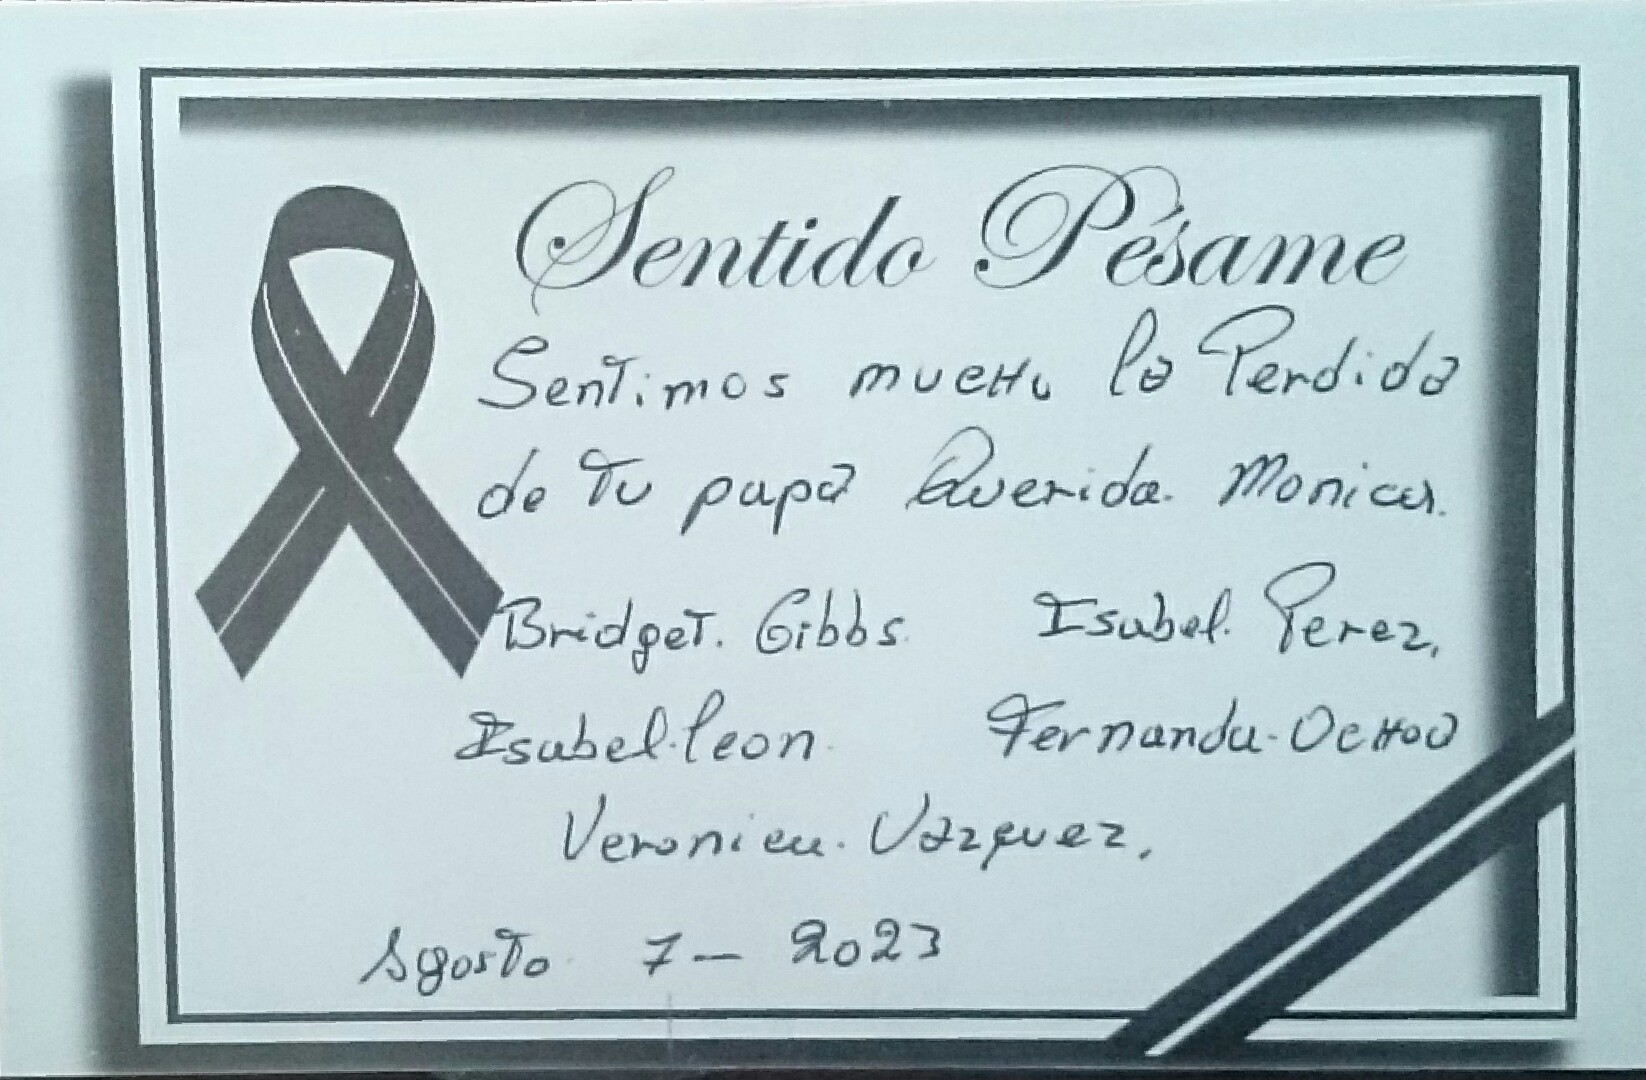 Sentido Pésame
Sentimos mucho la Perdida
de Tu papá Querida. Monica.
Bridget. Gibbs. Isabel. Perez,
Isabel. leon. Fernanda. Ochoa
Veronica. Vázquez,
Agosto 7 - 2023